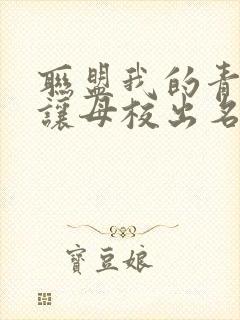 聯盟我的青
讓母校出名
寶豆娘